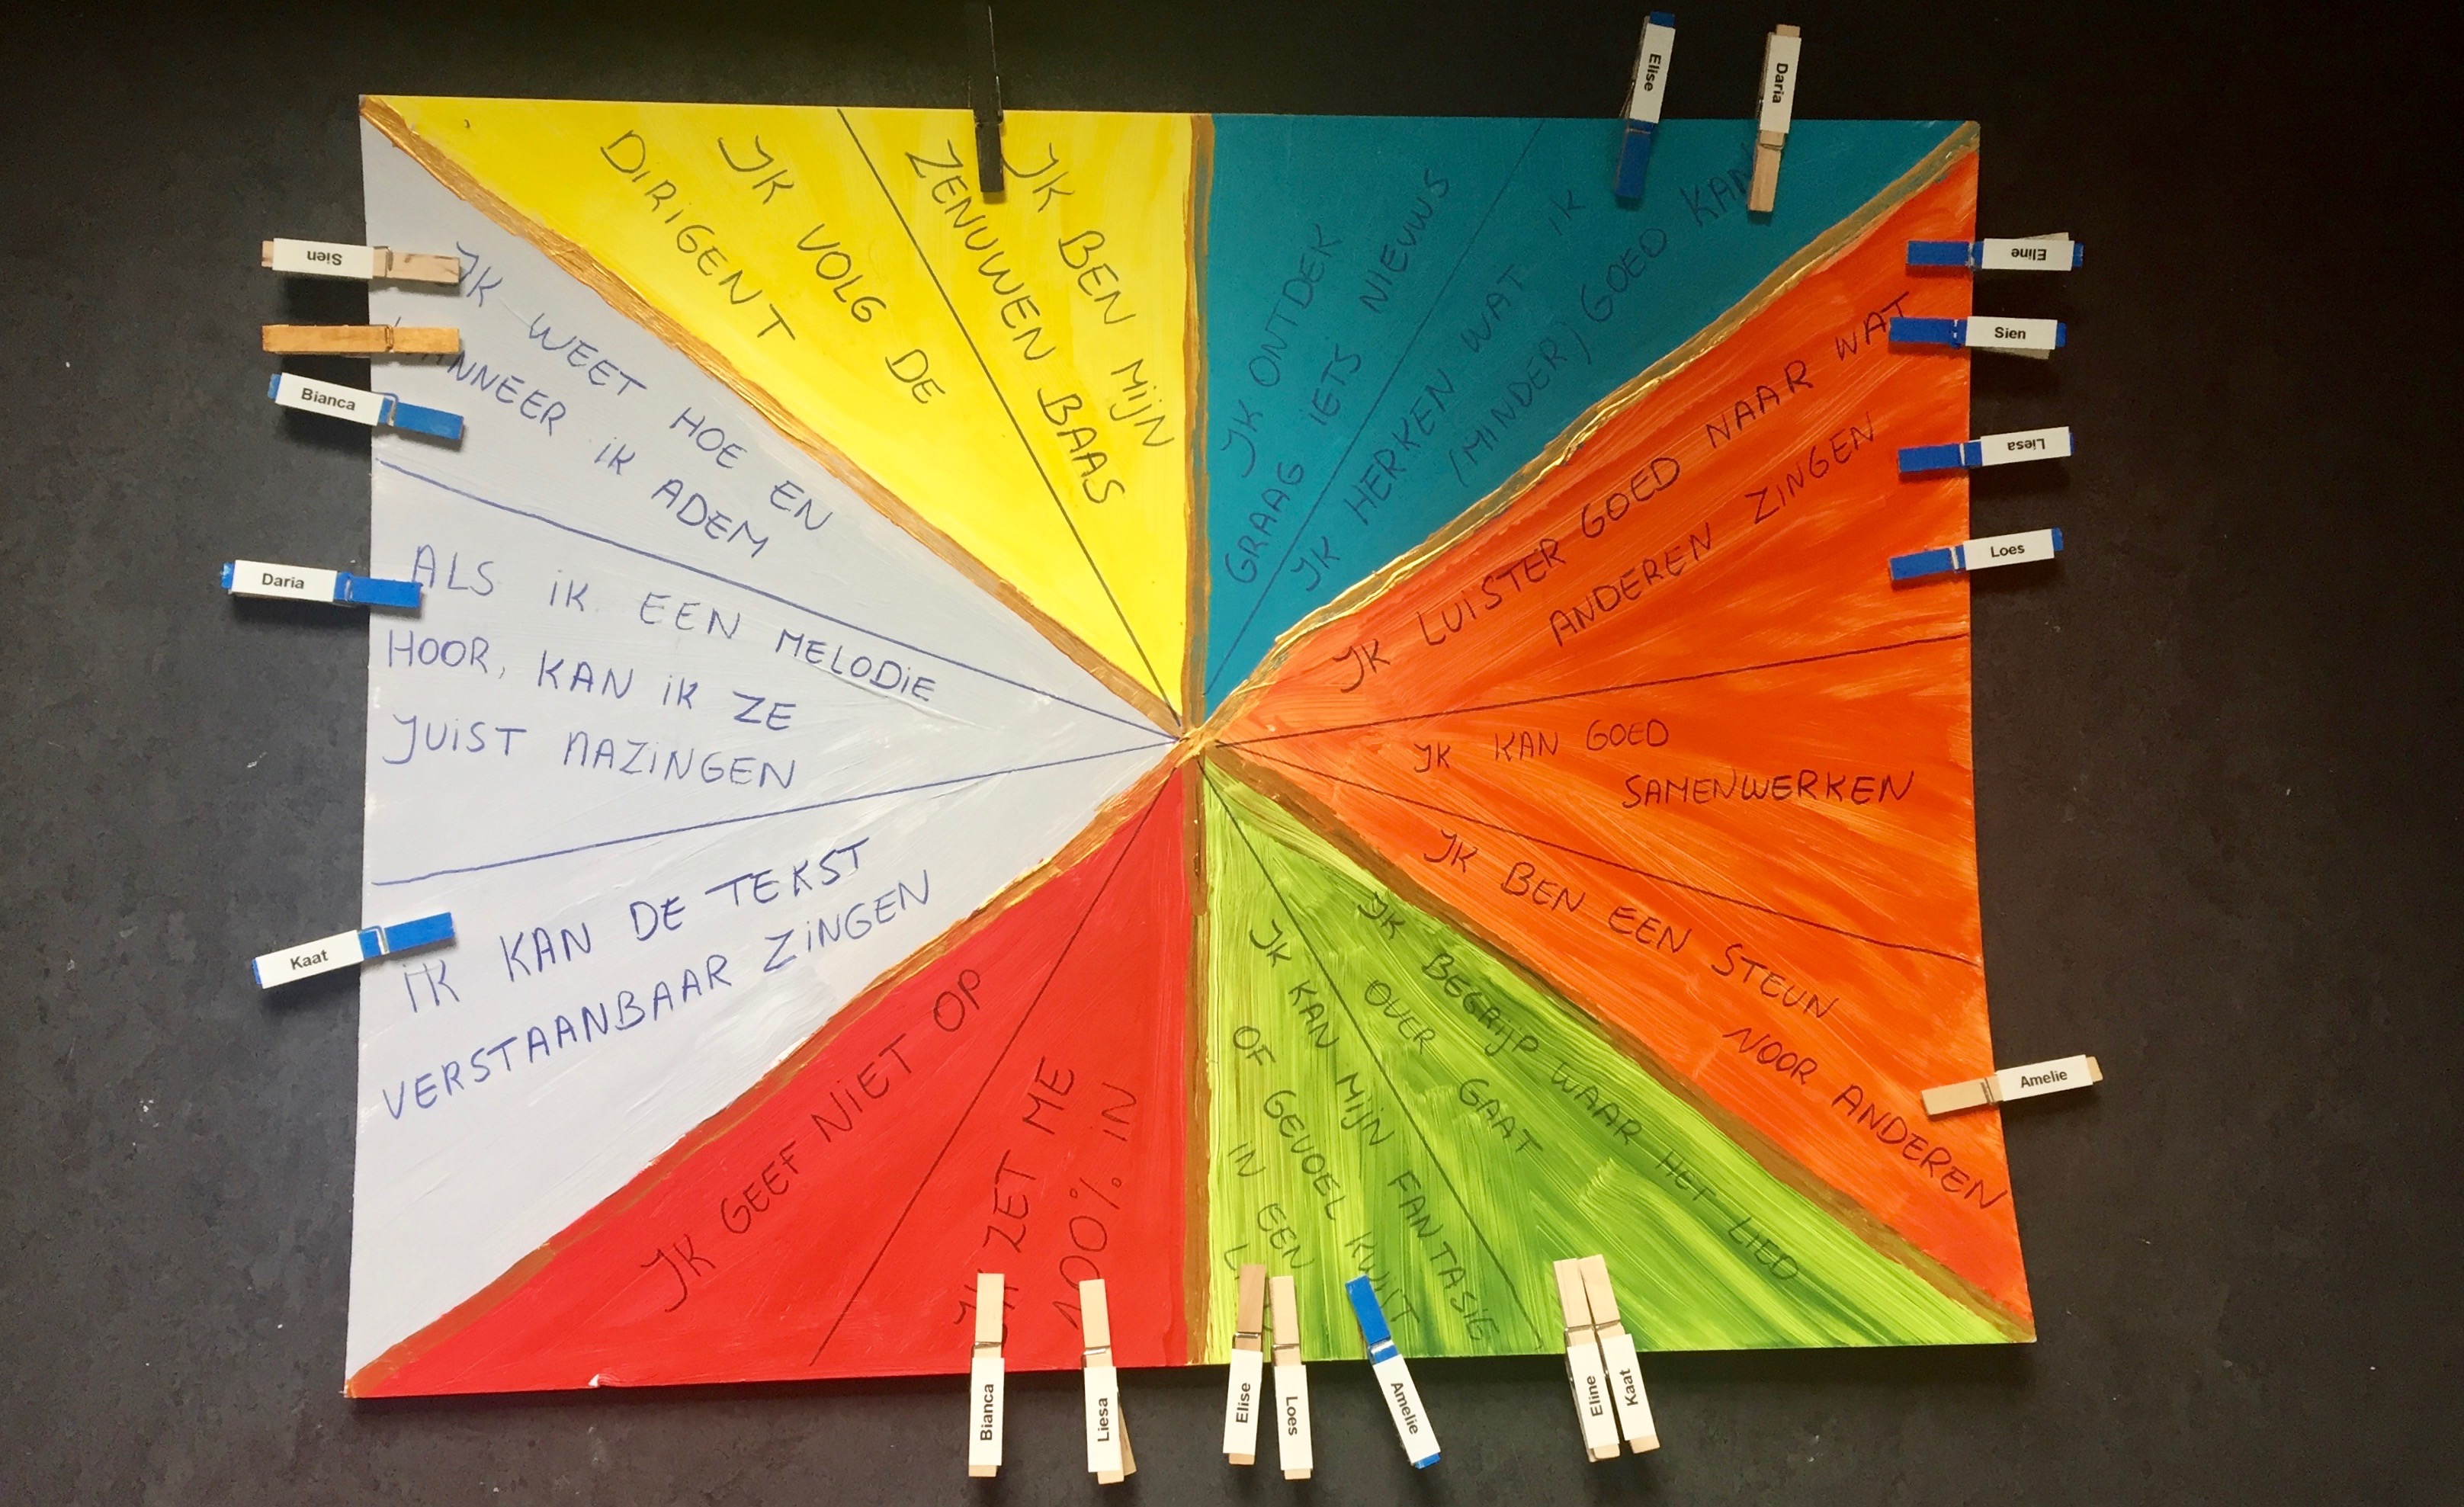 IK VOLG DE
DIRIGENT
IK BEN MIJN
ZENUWEN BAAS
IK ONTDEK
GRAAG IETS NIEUWS
IK HERKEN WAT IK
(MINDER) GOED KAN
Elise
Daria
IK LUISTER GOED NAAR WAT
ANDEREN ZINGEN
Eline
Sien
Liesa
Loes
IK KAN GOED
SAMENWERKEN
IK BEN EEN STEUN
VOOR ANDEREN
Amelie
IK BEGRIJP WAAR HET LIED
OVER GAAT
Eline
Kaat
IK KAN MIJN FANTASIE
OF GEVOEL KWIJT
IN EEN
Elise
Loes
Amelie
IK ZET ME
100% IN
Bianca
Liesa
IK GEEF NIET OP
IK KAN DE TEKST
VERSTAANBAAR ZINGEN
Kaat
ALS IK EEN MELODIE
HOOR, KAN IK ZE
JUIST NAZINGEN
Daria
IK WEET HOE EN
WANNEER IK ADEM
Sien
Bianca